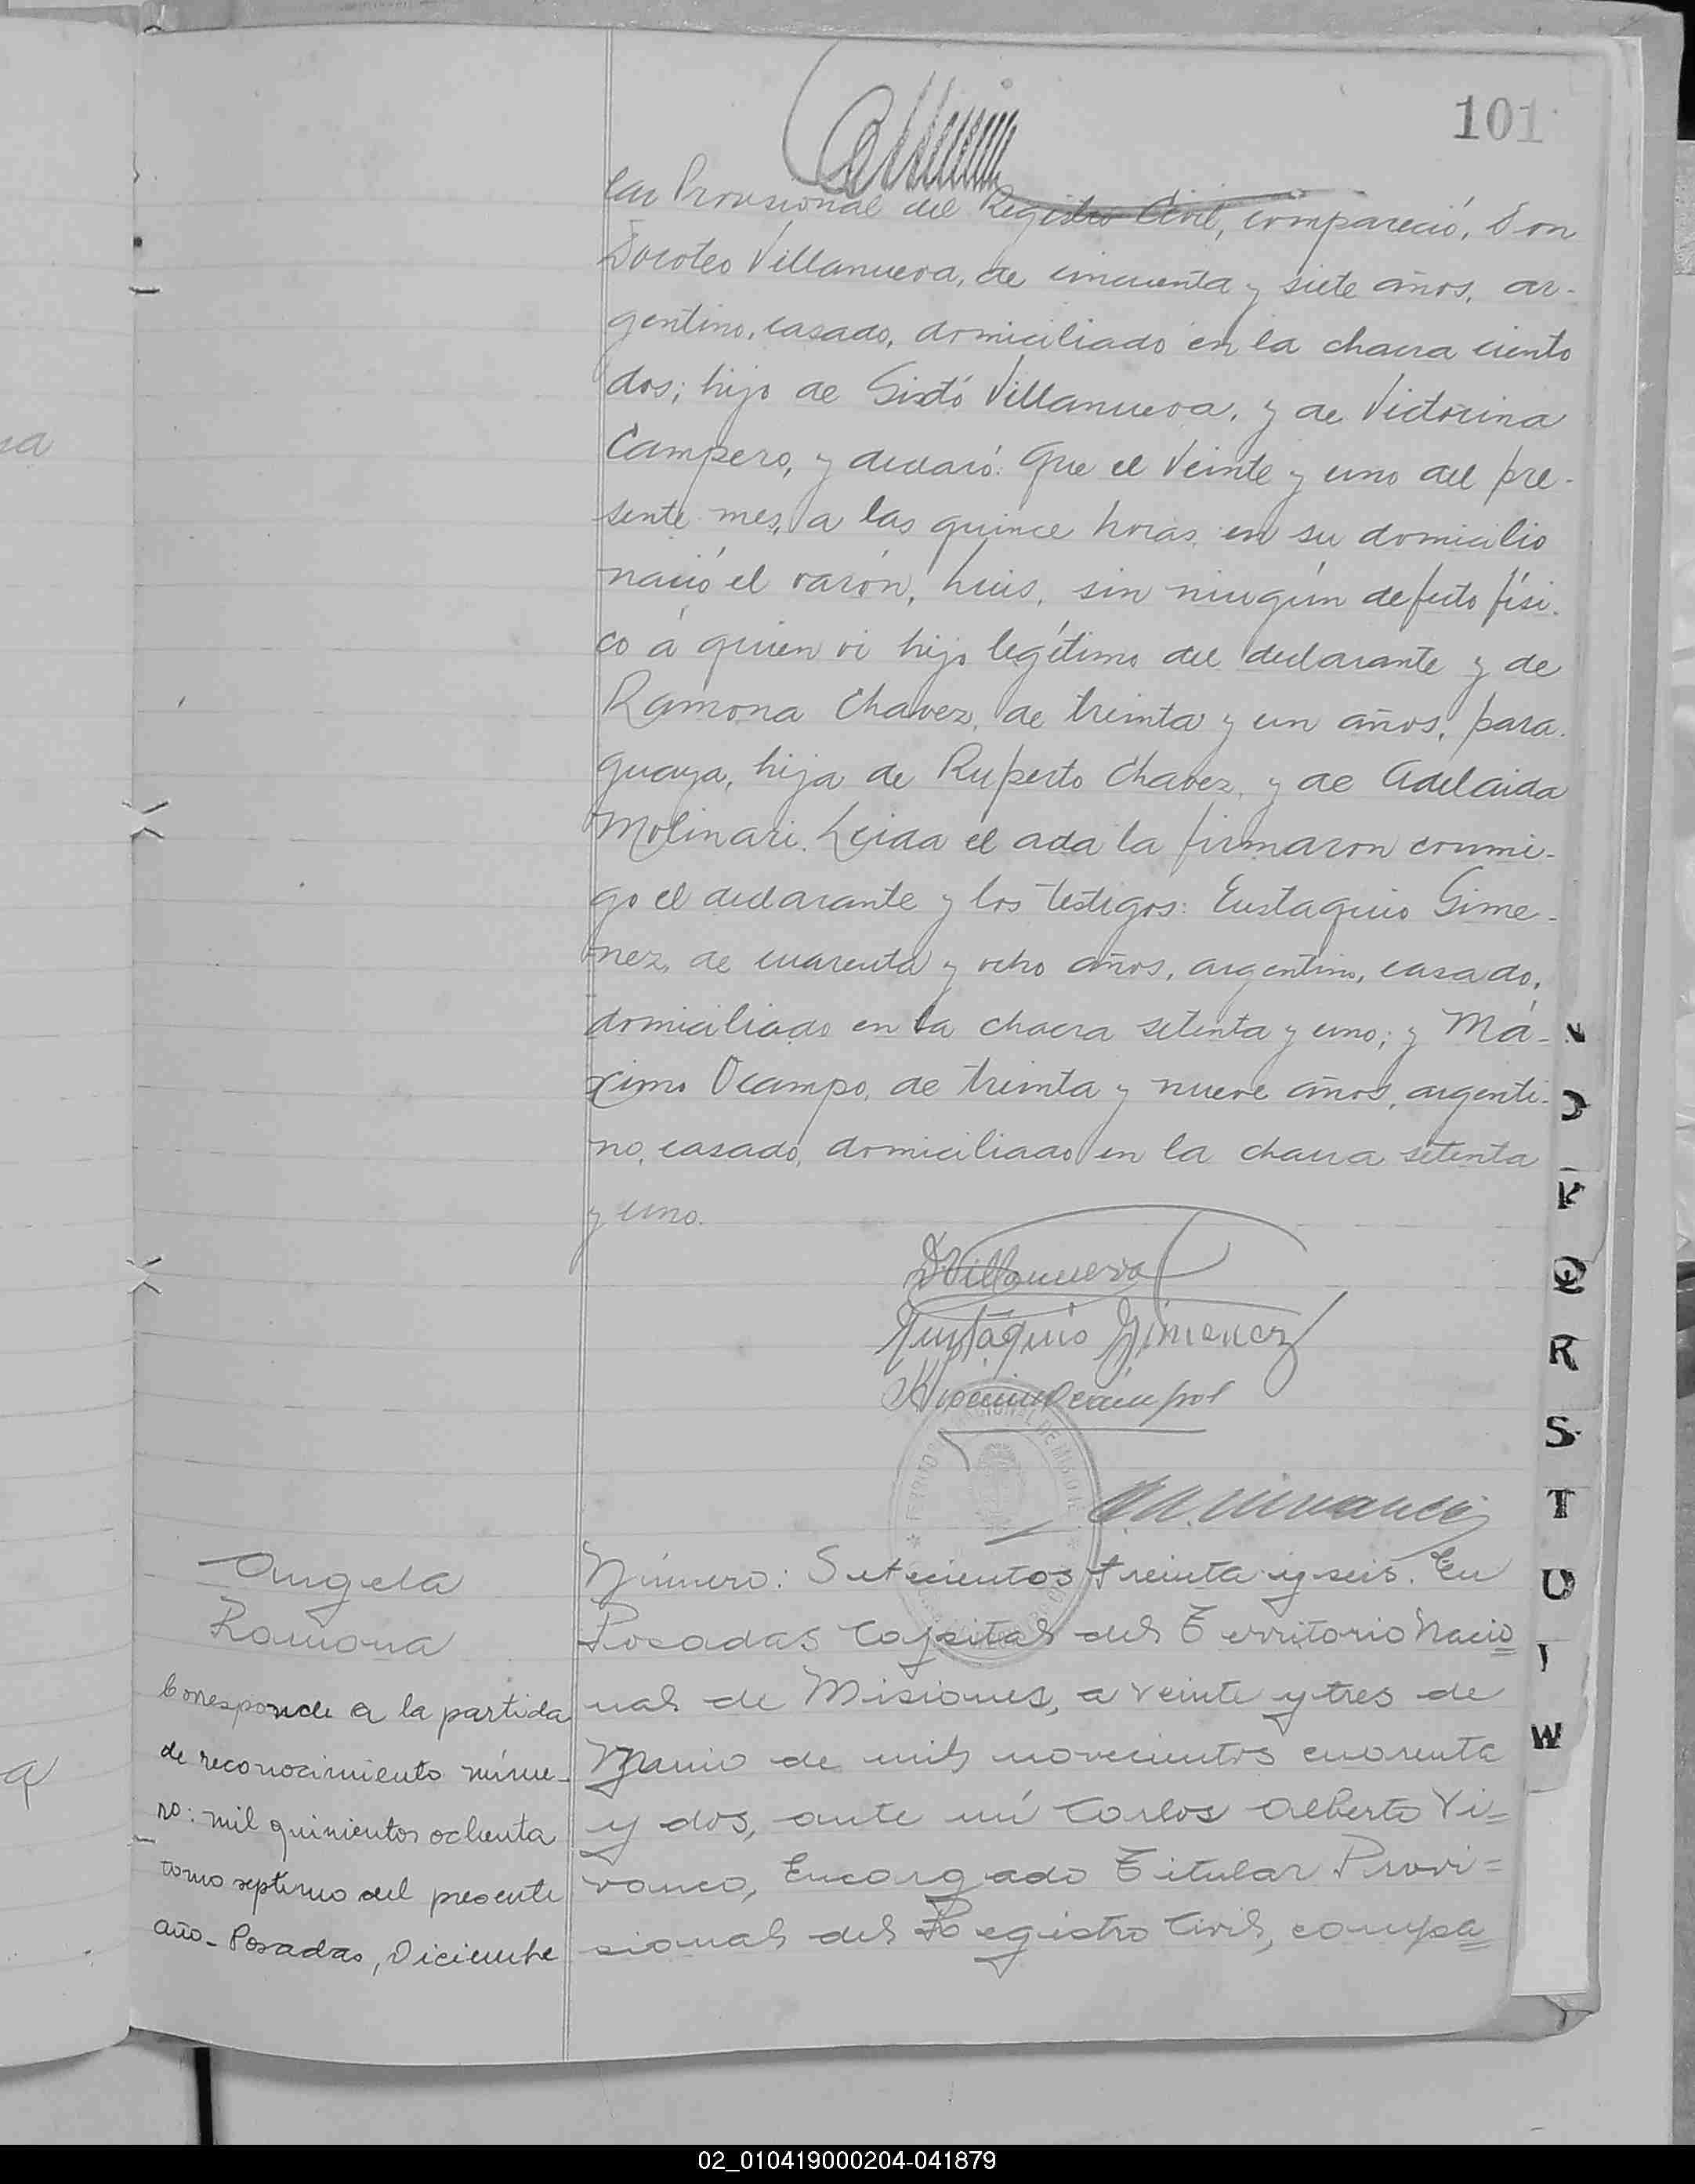 101
lar Provisional del Registro Civil, compareció, Don
Doroteo Villanueva, de cincuenta y siete años, ar-
gentino, casado, domiciliado en la chacra ciento
dos; hijo de Sixto Villanueva, y de Victorina
Campero, y declaró: Que el veinte y uno del pre-
sente mes, a las quince horas, en su domicilio
nació el varón, Luis, sin ningún defecto físi-
co á quien vi hijo legítimo del declarante y de
Ramona Chavez, de treinta y un años, para-
guaya, hija de Ruperto Chavez, y de Adelaida
Molinari. Leída el acta la firmaron conmi-
go el declarante y los testigos: Eustaquio Gime-
nez, de cuarenta y ocho años, argentino, casado,
domiciliado en la chacra setenta y uno; y Má-
ximo Ocampo, de treinta y nueve años, argenti-
no, casado, domiciliado en la chacra setenta
y uno.
D Villanueva
Eustaquio Gimenez
Angela
Ramona
Corresponde a la partida
de reconocimiento núme-
ro: mil quinientos ochenta
tomo septimo del presente
año - Posadas, Diciembre
Número: Setecientos treinta y seis. En
Posadas Capital del Territorio Nacio=
nal de Misiones, a veinte y tres de
Junio de mil novecientos cuarenta
y dos, ante mí Carlos Alberto Vi=
vanco, Encargado Titular Provi=
sional del Registro Civil, compa=
R
S
T
U
W
02_010419000204-041879